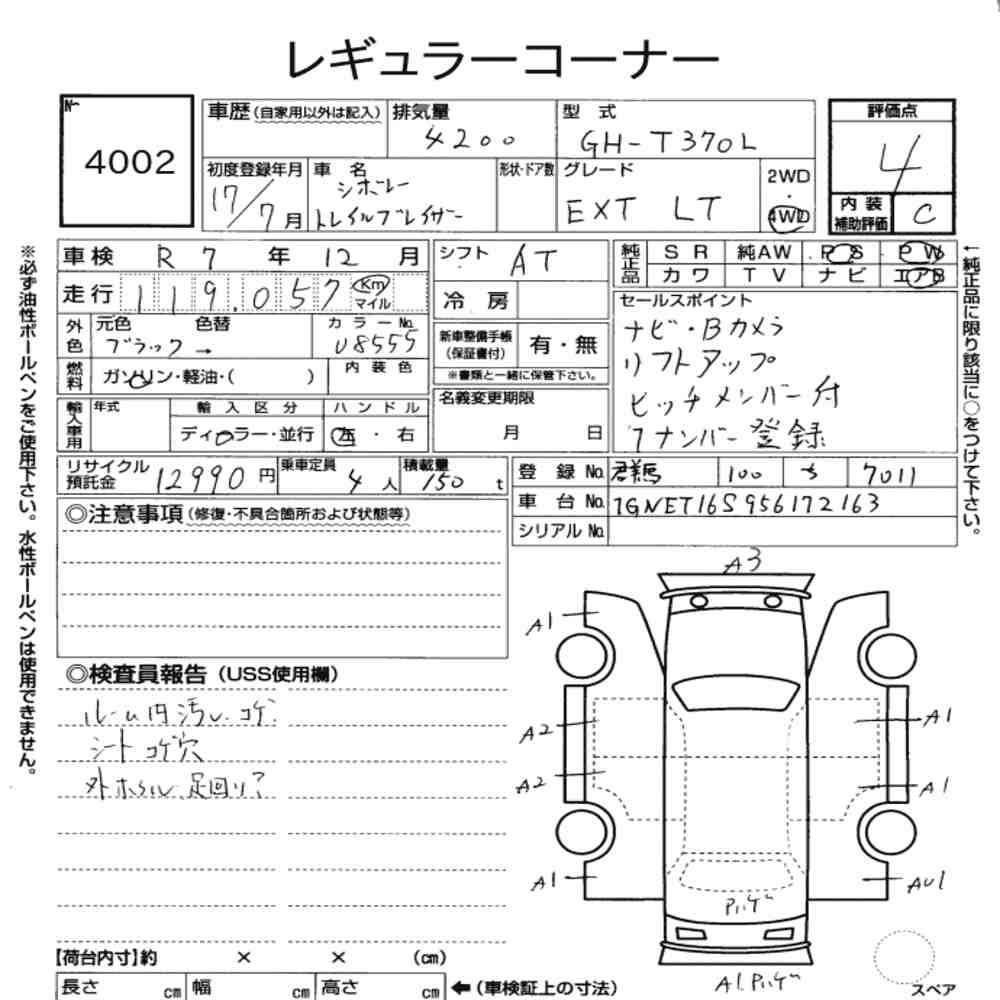 レギュラーコーナー
№
4002
車歴(自家用以外は記入)
排気量
4200
型式
GH-T370L
評価点
4
初度登録年月
17/7月
車名
シボレー
トレイルブレイザー
形状・ドア数
グレード
EXT LT
2WD
・
4WD
内装
補助評価
C
車検 R 7 年 12 月
走行 119,057 Km
マイル
シフト AT
冷房
純正品 SR 純AW PS PW
カワ TV ナビ エアB
外色 元色 色替 カラーNo.
ブラック → U8555
新車整備手帳
(保証書付)
有・無
※書類と一緒に保管下さい。
セールスポイント
ナビ・Bカメラ
リフトアップ
ヒッチメンバー付
1ナンバー登録
燃料 ガソリン・軽油・( ) 内装色
輸入車用 年式 輸入区分 ハンドル
ディーラー・並行 左・右
名義変更期限
月 日
リサイクル
預託金
12990円
乗車定員
4人
積載量
150 t
登録No. 群馬 100 ち 7011
車台No. 1GNET16S956172163
シリアルNo.
◎注意事項(修復・不具合箇所および状態等)
◎検査員報告(USS使用欄)
ルーム内汚れ、コゲ
シートコゲ穴
外ホイル、足回り?
A3
A1
A2
A1
A2
A1
A1
AU1
Pハゲ
A1.Pハゲ
スペア
【荷台内寸】約 × × (cm)
長さ cm 幅 cm 高さ cm ←(車検証上の寸法)
※必ず油性ボールペンをご使用下さい。水性ボールペンは使用できません。
←純正品に限り該当に○をつけて下さい。